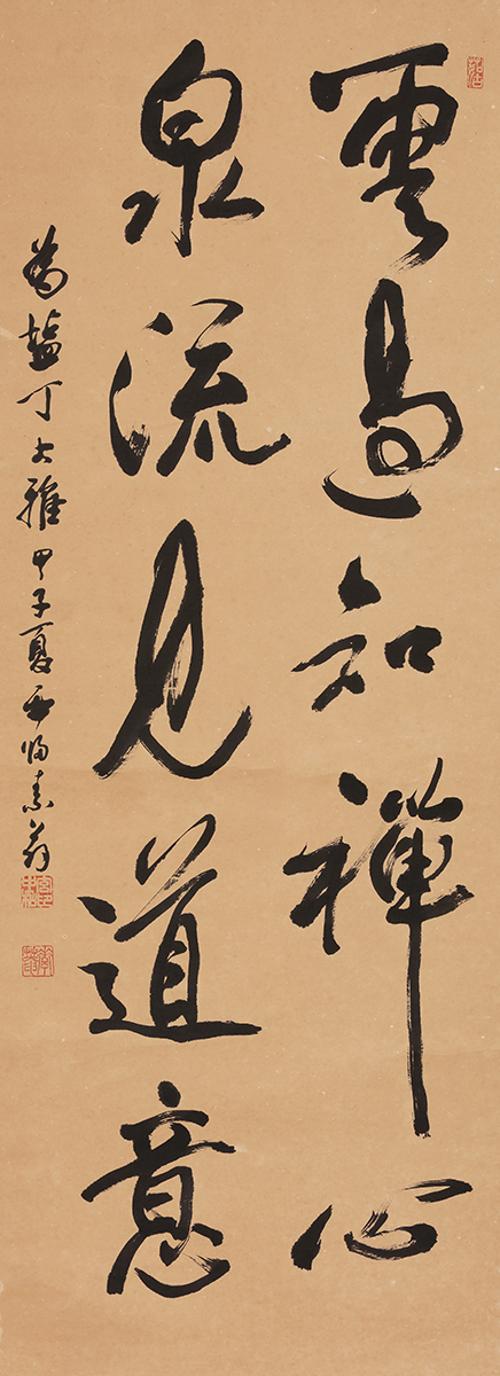 雲過知禪心
泉流見道意
為 丁大雅甲子夏 素翁